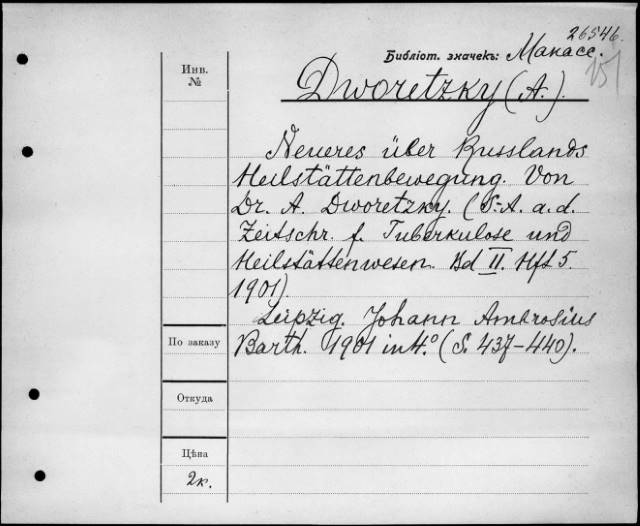 26546.
Библіот. значекъ: Макасс.
Инв.
№
Dworetzky (A.).
Neueres über Russlands
Heilstättenbewegung. Von
Dr. A. Dworetzky. (S.-A. a. d.
Zeitschr. f. Tuberkulose und
Heilstättenwesen. Bd II. Hft 5.
1901).
Leipzig. Johann Ambrosius
По заказу
Barth. 1901 in 4.° (S. 437–440).
Откуда
Цѣна
2к.